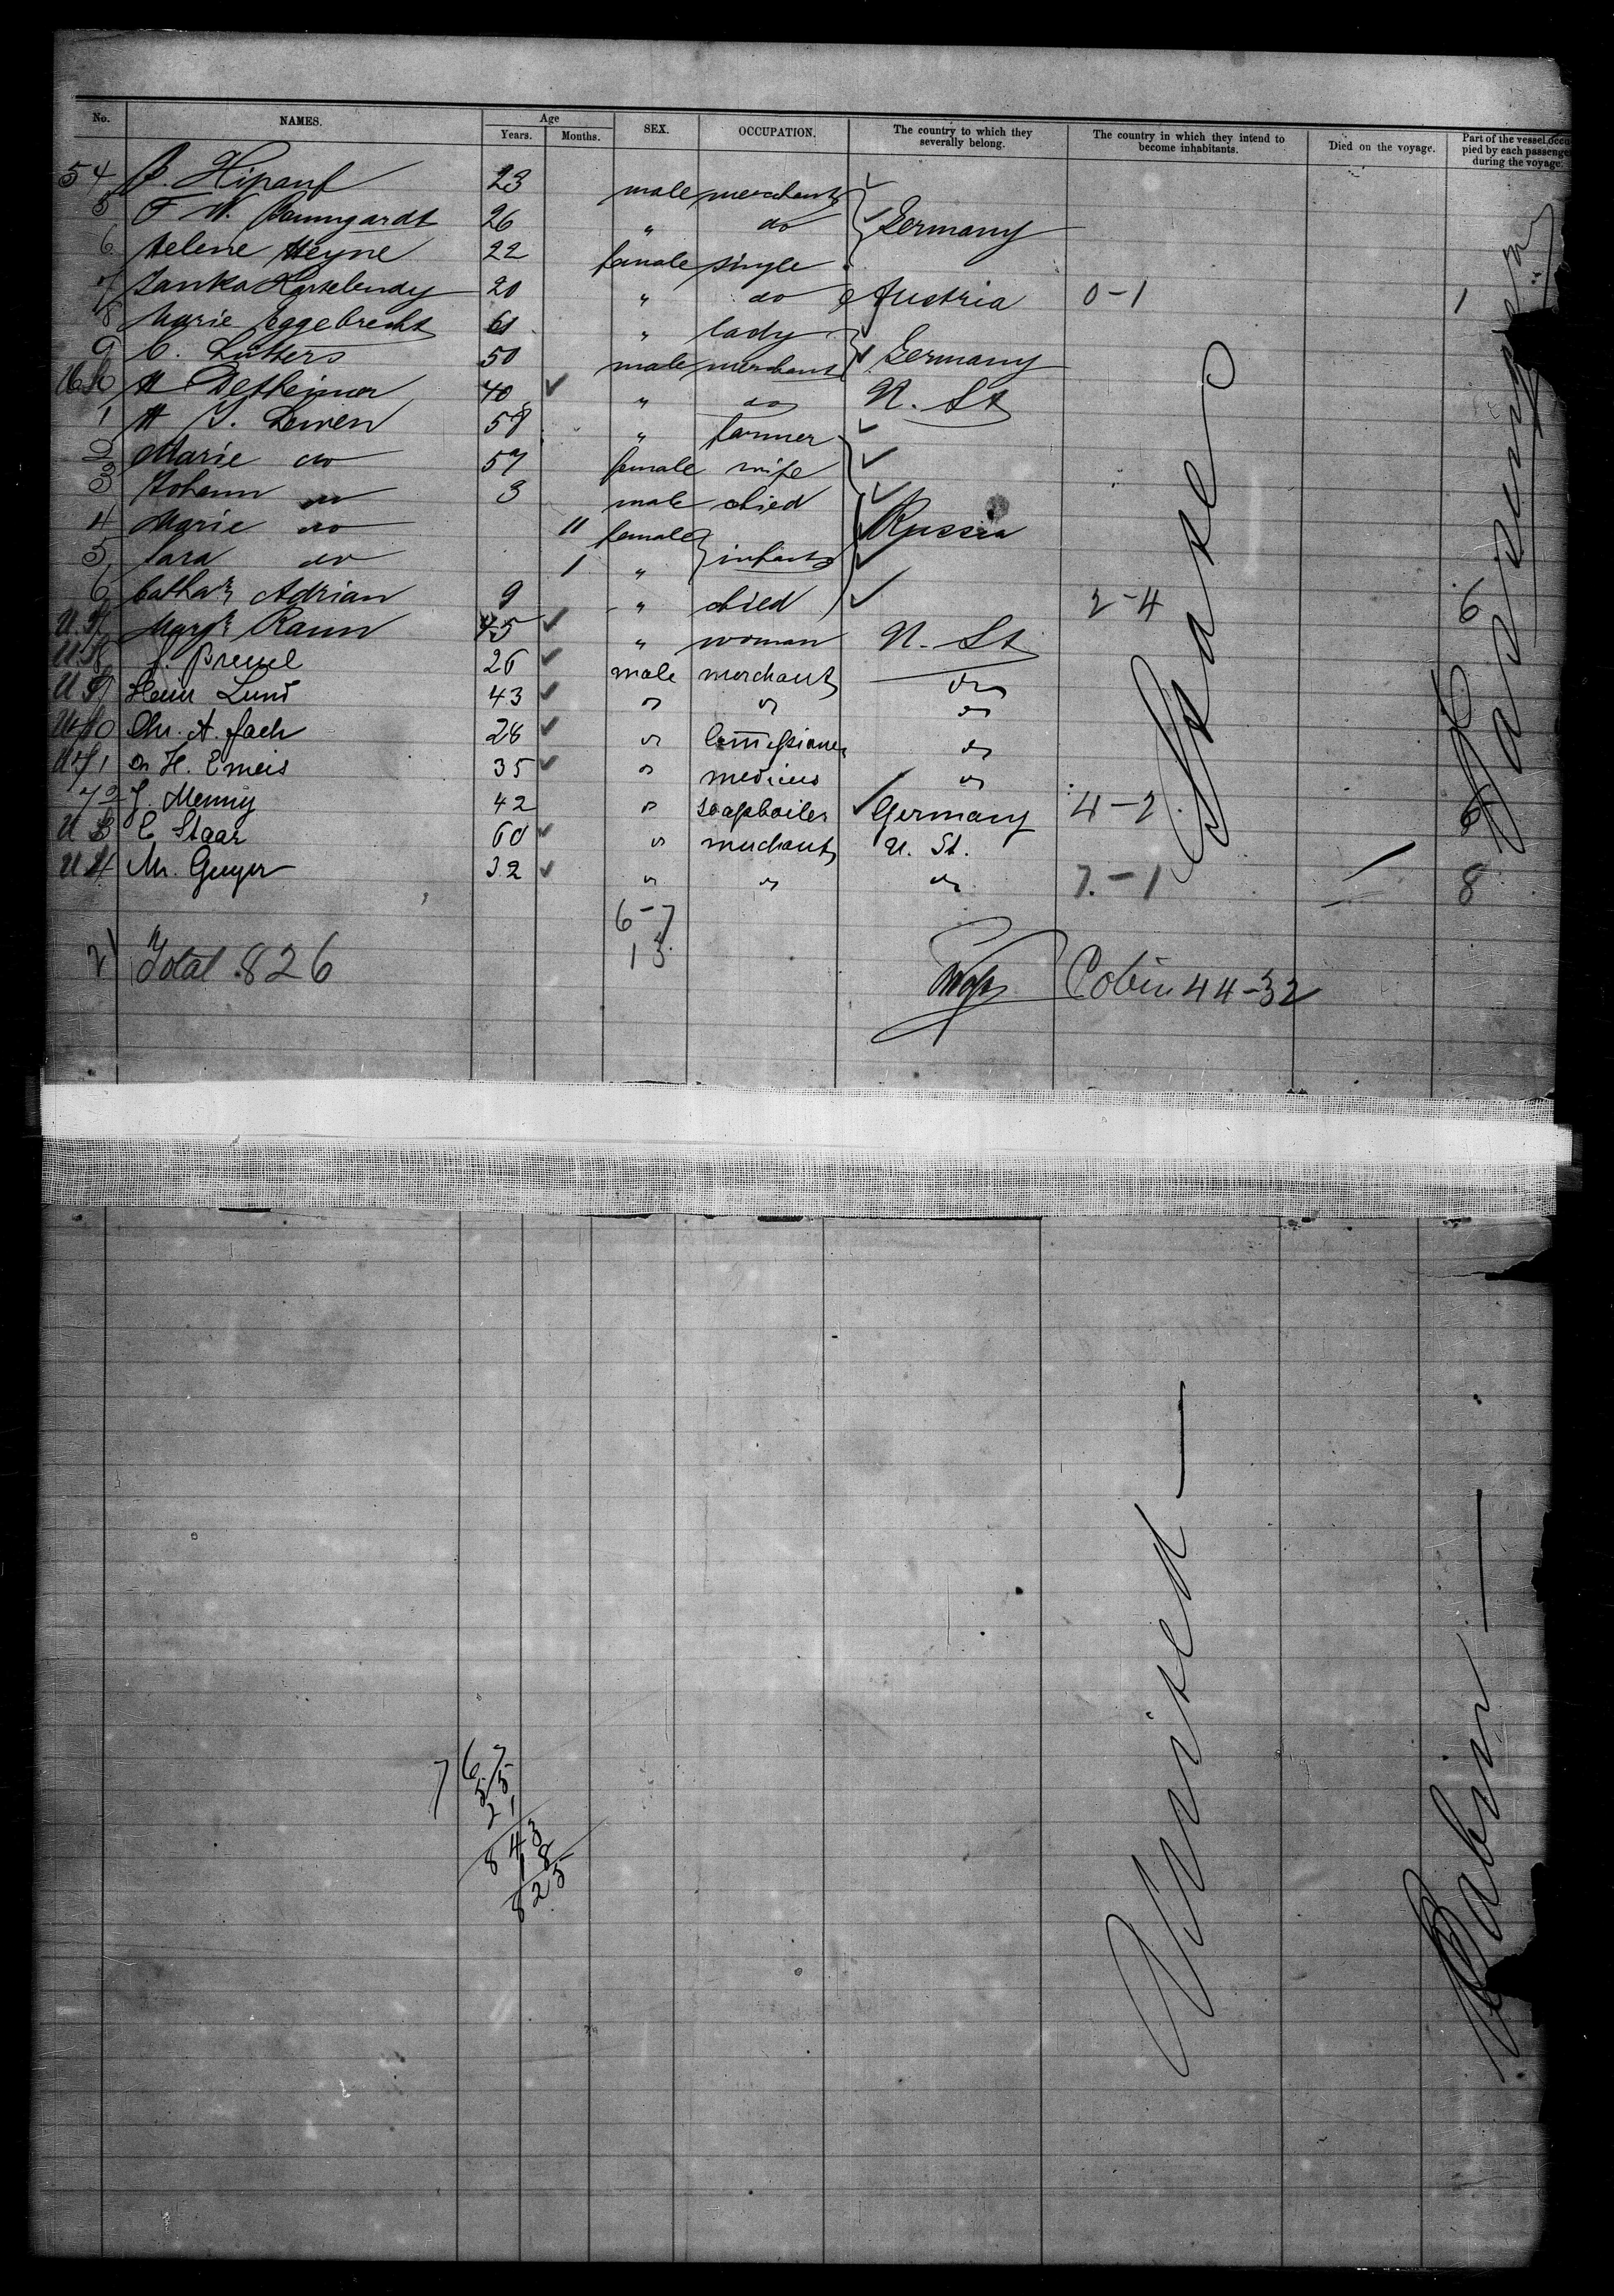 No. NAMES. Age Years. Months. SEX. OCCUPATION. The country to which they severally belong. The country in which they intend to become inhabitants. Died on the voyage. Part of the vessel occupied by each passenger during the voyage.
54 23 male merchant
5 F W. Baumgardt 26 " do Germany
6 Helene Heyne 22 female single
7 20 " do Austria 0-1 1
8 Marie Eggebrecht 61 " lady
9 C. Lütters 50 male merchant Germany
H 40 " do U. St
1 H J. 58 " farmer
2 Marie do 57 female wife
3 Johann do 3 male child
4 Marie do 11 female Russia
5 Sara do 1 " infants
6 Cathar. Adrian 9 " child 2-4 6
Margr. Raun 45 " woman U. St
J. 26 male merchant do
Hein Lund 43 do do do
Chr. A. 28 do do
H. Emeis 35 do medicus do
72 J. Menny 42 do soapboiler Germany 4-2 6
E Staar 60 do merchant U. St.
Mr. Geyer 32 do do do 7-1 8
6-7
21 Total 826 13
Cabin 44-32
States
Passengers
United —
Cabin —
767
55
21
843
18
825